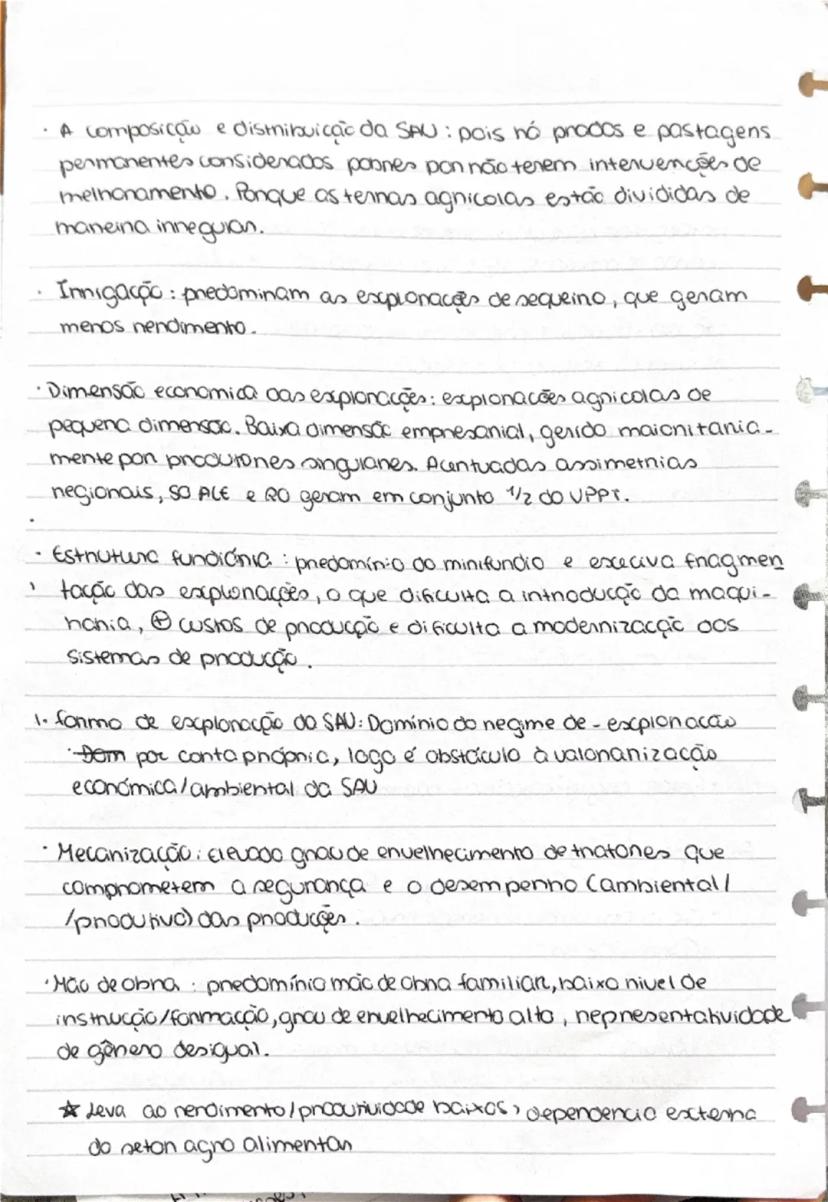 · A composição e distribuição da SAU: pois há prados e pastagens
permanentes considerados pobres por não terem intervenções de
melhoramento. Porque as terras agricolas estão divididas de
maneira irregular.
· Irrigação: predominam as explorações de sequeiro, que geram
menos rendimento.
· Dimensão economica das explorações: explorações agricolas de
pequena dimensão. Baixa dimensão empresarial, gerido maioritaria-
mente por produtores singulares. Acentuadas assimetrias
regionais, só ALE e RO geram em conjunto 1/2 do VPPT.
· Estrutura fundiária: predomínio do minifundio e exceciva fragmen
tação das explorações, o que dificulta a introdução da maqui-
naria, ⊕ custos de produção e dificulta a modernização dos
sistemas de produção.
1. forma de exploração da SAU: Domínio do regime de - exploração
por conta própria, logo é obstáculo à valorarização
económica/ambiental da SAU
· Mecanização: elevado grau de envelhecimento de tratores que
comprometem a segurança e o desempenho (ambiental/
/produtivo) das produções.
· Mão de obra: predomínio mão de obra familiar, baixo nivel de
instrução/formação, grau de envelhecimento alto, representatividade
de gênero desigual.
☆ Leva ao rendimento/produtividade baixos, dependencia externa
do setor agro alimentar